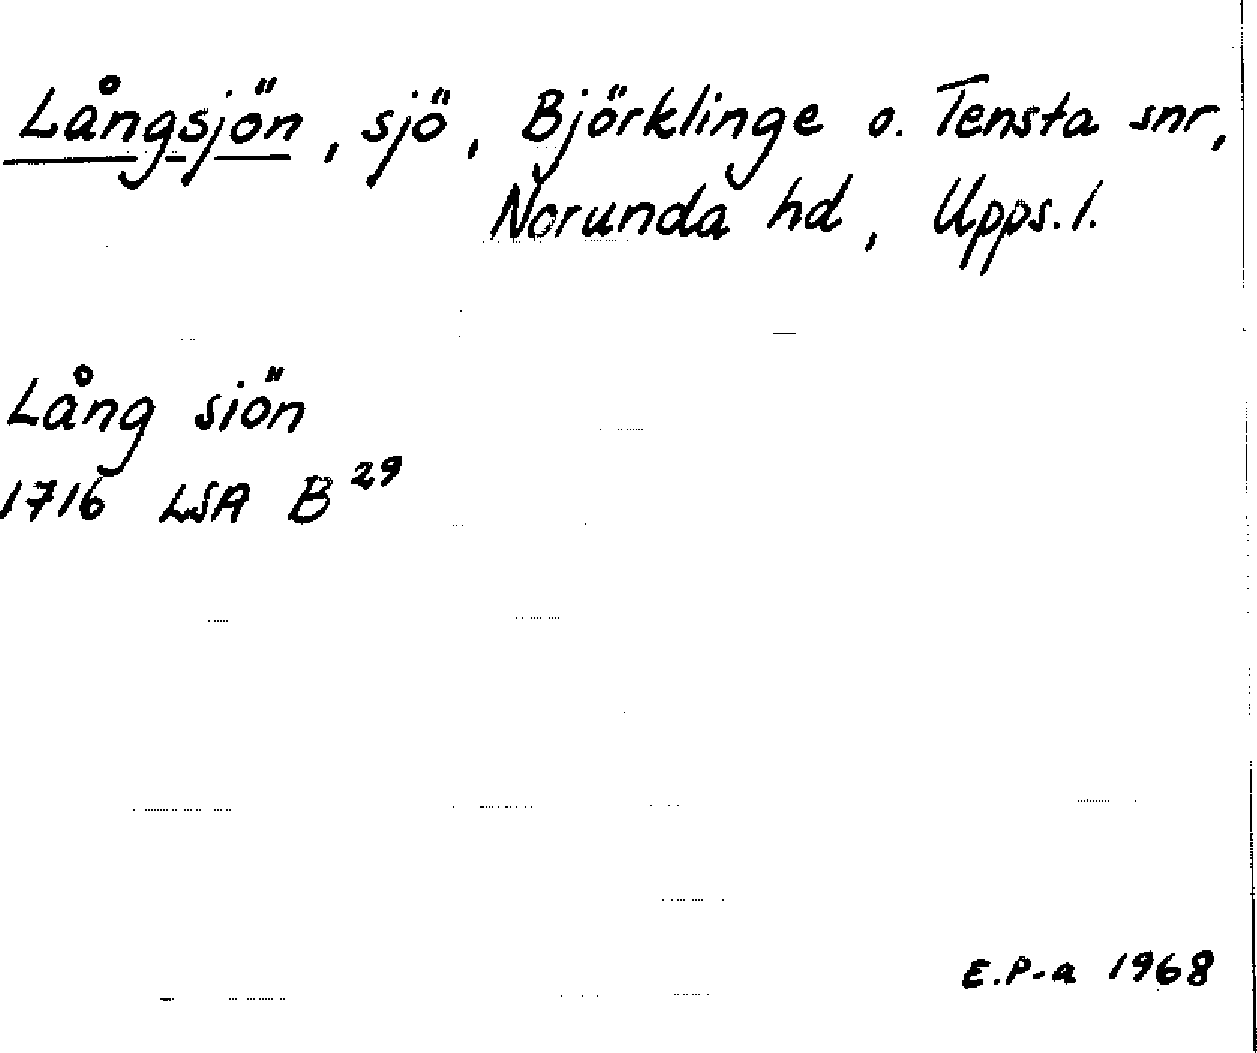 Långsjön, sjö, Björklinge o. Tensta snr,
Norunda hd, Upps. l.
Lång siön
1716 LSA B 29
E.P-a 1968